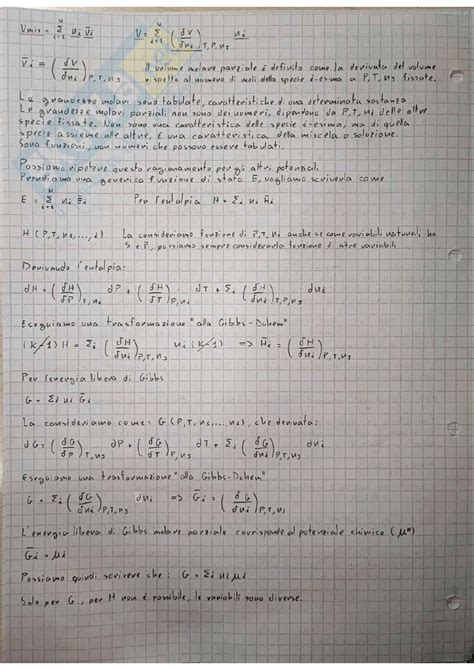 Vmix = Σ_{i=1}^{N} ni V̄i    V = Σ_{i=1}^{N} (δV/δni)_{P,T,nj} ni
V̄i = (δV/δni)_{P,T,nj}    Il volume molare parziale è definito come la derivata del volume
rispetto al numero di moli della specie i-esima a P,T,nj fissate.
Le grandezze molari sono tabulate, caratteristiche di una determinata sostanza
Le grandezze molari parziali non sono dei numeri, dipendono da P,T,ni delle altre
specie fissate. Non sono una caratteristica delle specie i-esima, ma di quella
specie assieme alle altre, È una caratteristica della miscela o soluzione.
Sono funzioni, non numeri che possono essere tabulati.
Possiamo ripetere questo ragionamento per gli altri potenziali.
Prendiamo una generica funzione di stato E, vogliamo scriverla come
E = Σ_{i=1}^{N} ni Ēi    Per l'entalpia H = Σi ni H̄i
H (P,T,n1,...,i)    La consideriamo funzione di P,T,ni anche se come variabili naturali ha
S e P, possiamo sempre considerarla funzione di altre variabili
Derivando l'entalpia:
dH = (δH/δP)_{T,ni} dP + (δH/δT)_{P,ni} dT + Σi (δH/δni)_{P,T,nj} dni
Eseguiamo una trasformazione "alla Gibbs-Duhem"
(K-1) H = Σi (δH/δni)_{P,T,nj} ni (K-1) => H̄i = (δH/δni)_{P,T,nj}
Per l'energia libera di Gibbs
G = Σi ni Ḡi
La consideriamo come: G (P,T,n1,...,ni), che derivata:
dG = (δG/δP)_{T,ni} dP + (δG/δT)_{P,ni} dT + Σi (δG/δni)_{P,T,nj} dni
Eseguiamo una trasformazione "alla Gibbs-Duhem"
G = Σi (δG/δni)_{P,T,nj} dni => Ḡi = (δG/δni)_{P,T,nj}
L'energia libera di Gibbs molare parziale corrisponde al potenziale chimico (μ°)
Ḡi = μi
Possiamo quindi scrivere che: G = Σi ni μi
Solo per G, per H non è possibile, le variabili sono diverse.